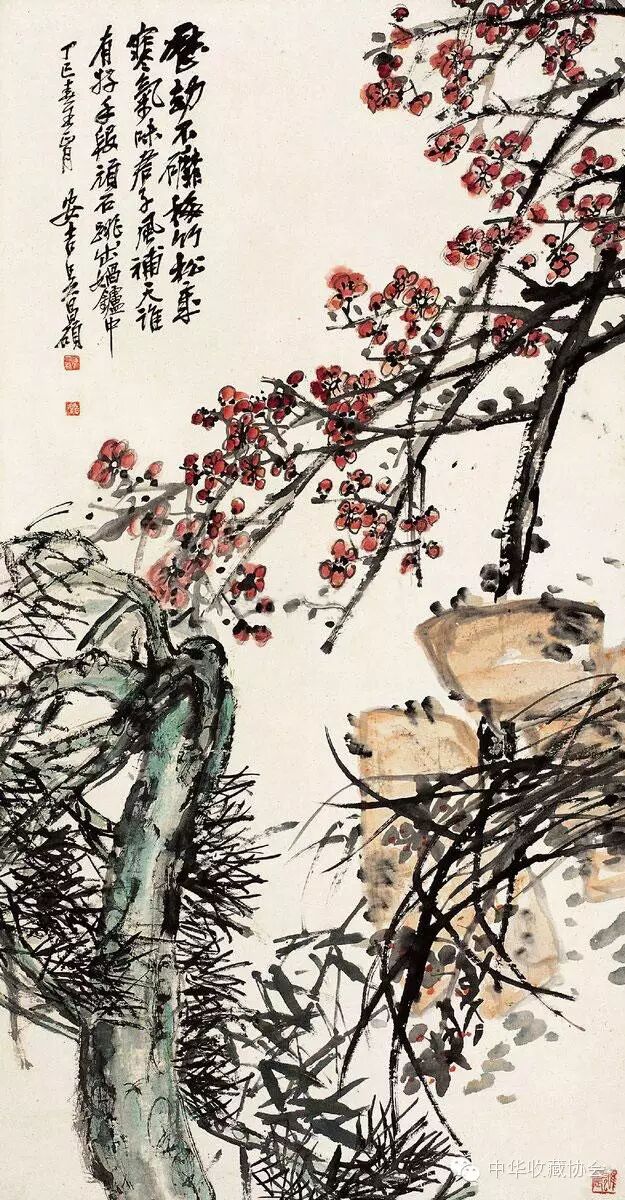 歷劫不梅竹松歲
寒氣味君子風補天誰
有好手段頑石跳出媧鑪中
丁巳春王正月 安吉吳昌碩
中华收藏协会